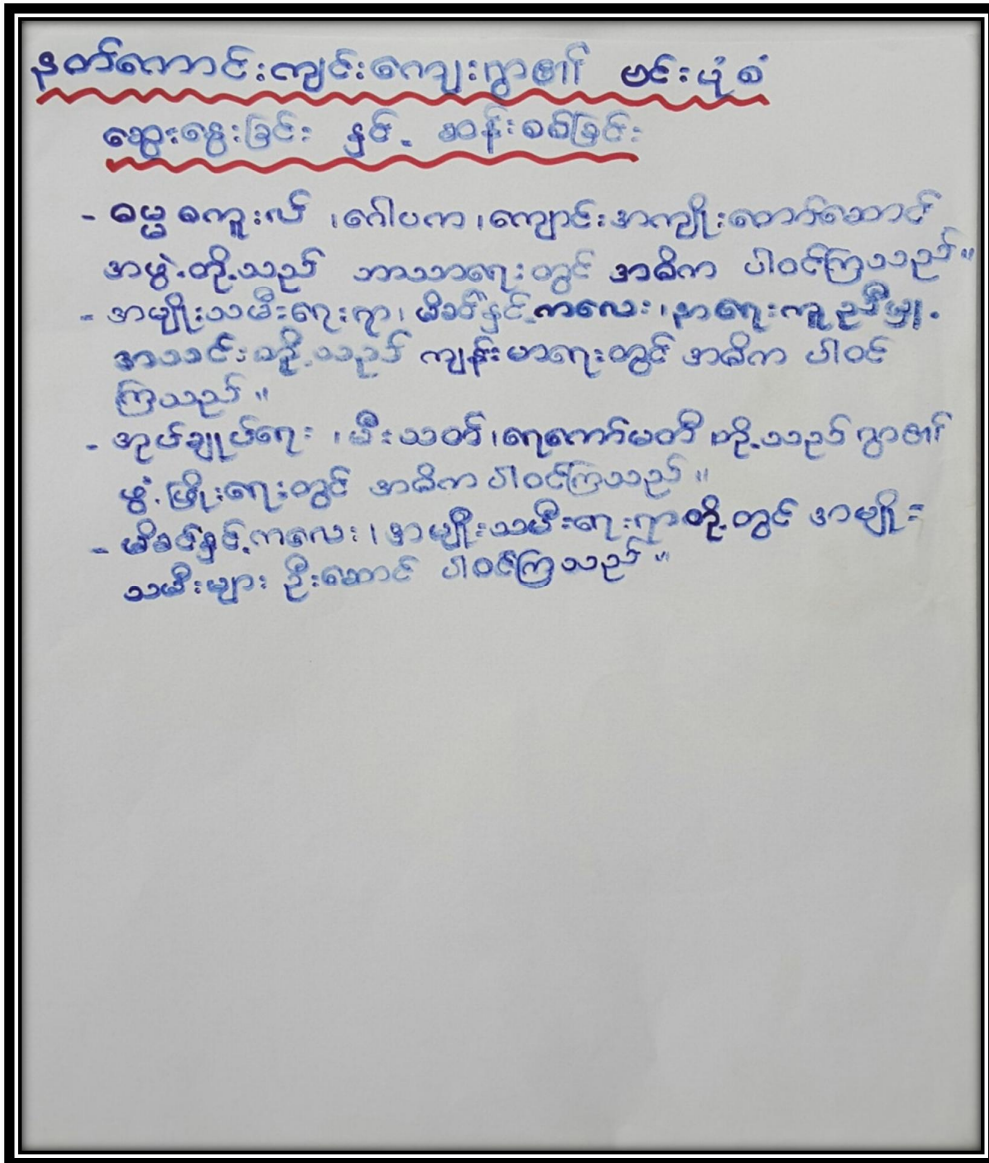 နတ်ကောင်းကျင်းကျေးရွာ၏ ဗင်းပုံစံ
ဆွေးနွေးခြင်း နှင့် ဆန်းစစ်ခြင်း
- ဓမ္မစကူးလ် ၊ ဂေါပက ၊ ကျောင်းအကျိုးတော်ဆောင်
အဖွဲ့တို့သည် ဘာသာရေးတွင် အဓိက ပါဝင်ကြသည်။
- အမျိုးသမီးရေးရာ ၊ မိခင်နှင့်ကလေး ၊ နာရေးကူညီမှု
အသင်းတို့သည် ကျန်းမာရေးတွင် အဓိက ပါဝင်
ကြသည်။
- အုပ်ချုပ်ရေး ၊ မီးသတ် ၊ ရေကော်မတီ တို့သည် ရွာ၏
ဖွံ့ဖြိုးရေးတွင် အဓိက ပါဝင်ကြသည်။
- မိခင်နှင့်ကလေး ၊ အမျိုးသမီးရေးရာတို့တွင် အမျိုး
သမီးများ ဦးဆောင် ပါဝင်ကြသည်။